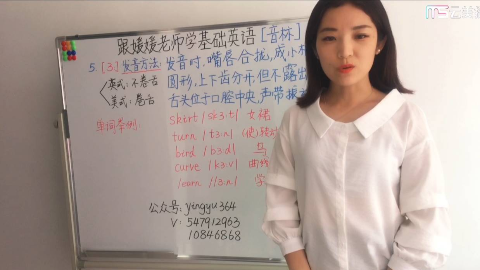 跟媛媛老师学基础英语[音标]
5.[3:]发音方法:发音时,嘴唇合拢,成小
英式:不卷舌 圆形,上下齿分开,但不露出
美式:卷舌 舌头位于口腔中央,声带振
单词举例
skirt /sk3:t/ 女裙
turn /t3:n/ (使)转动
bird /b3:d/ 鸟
curve /k3:v/ 曲线
learn /l3:n/ 学
公众号:yingyu364
V:547912963
10846868